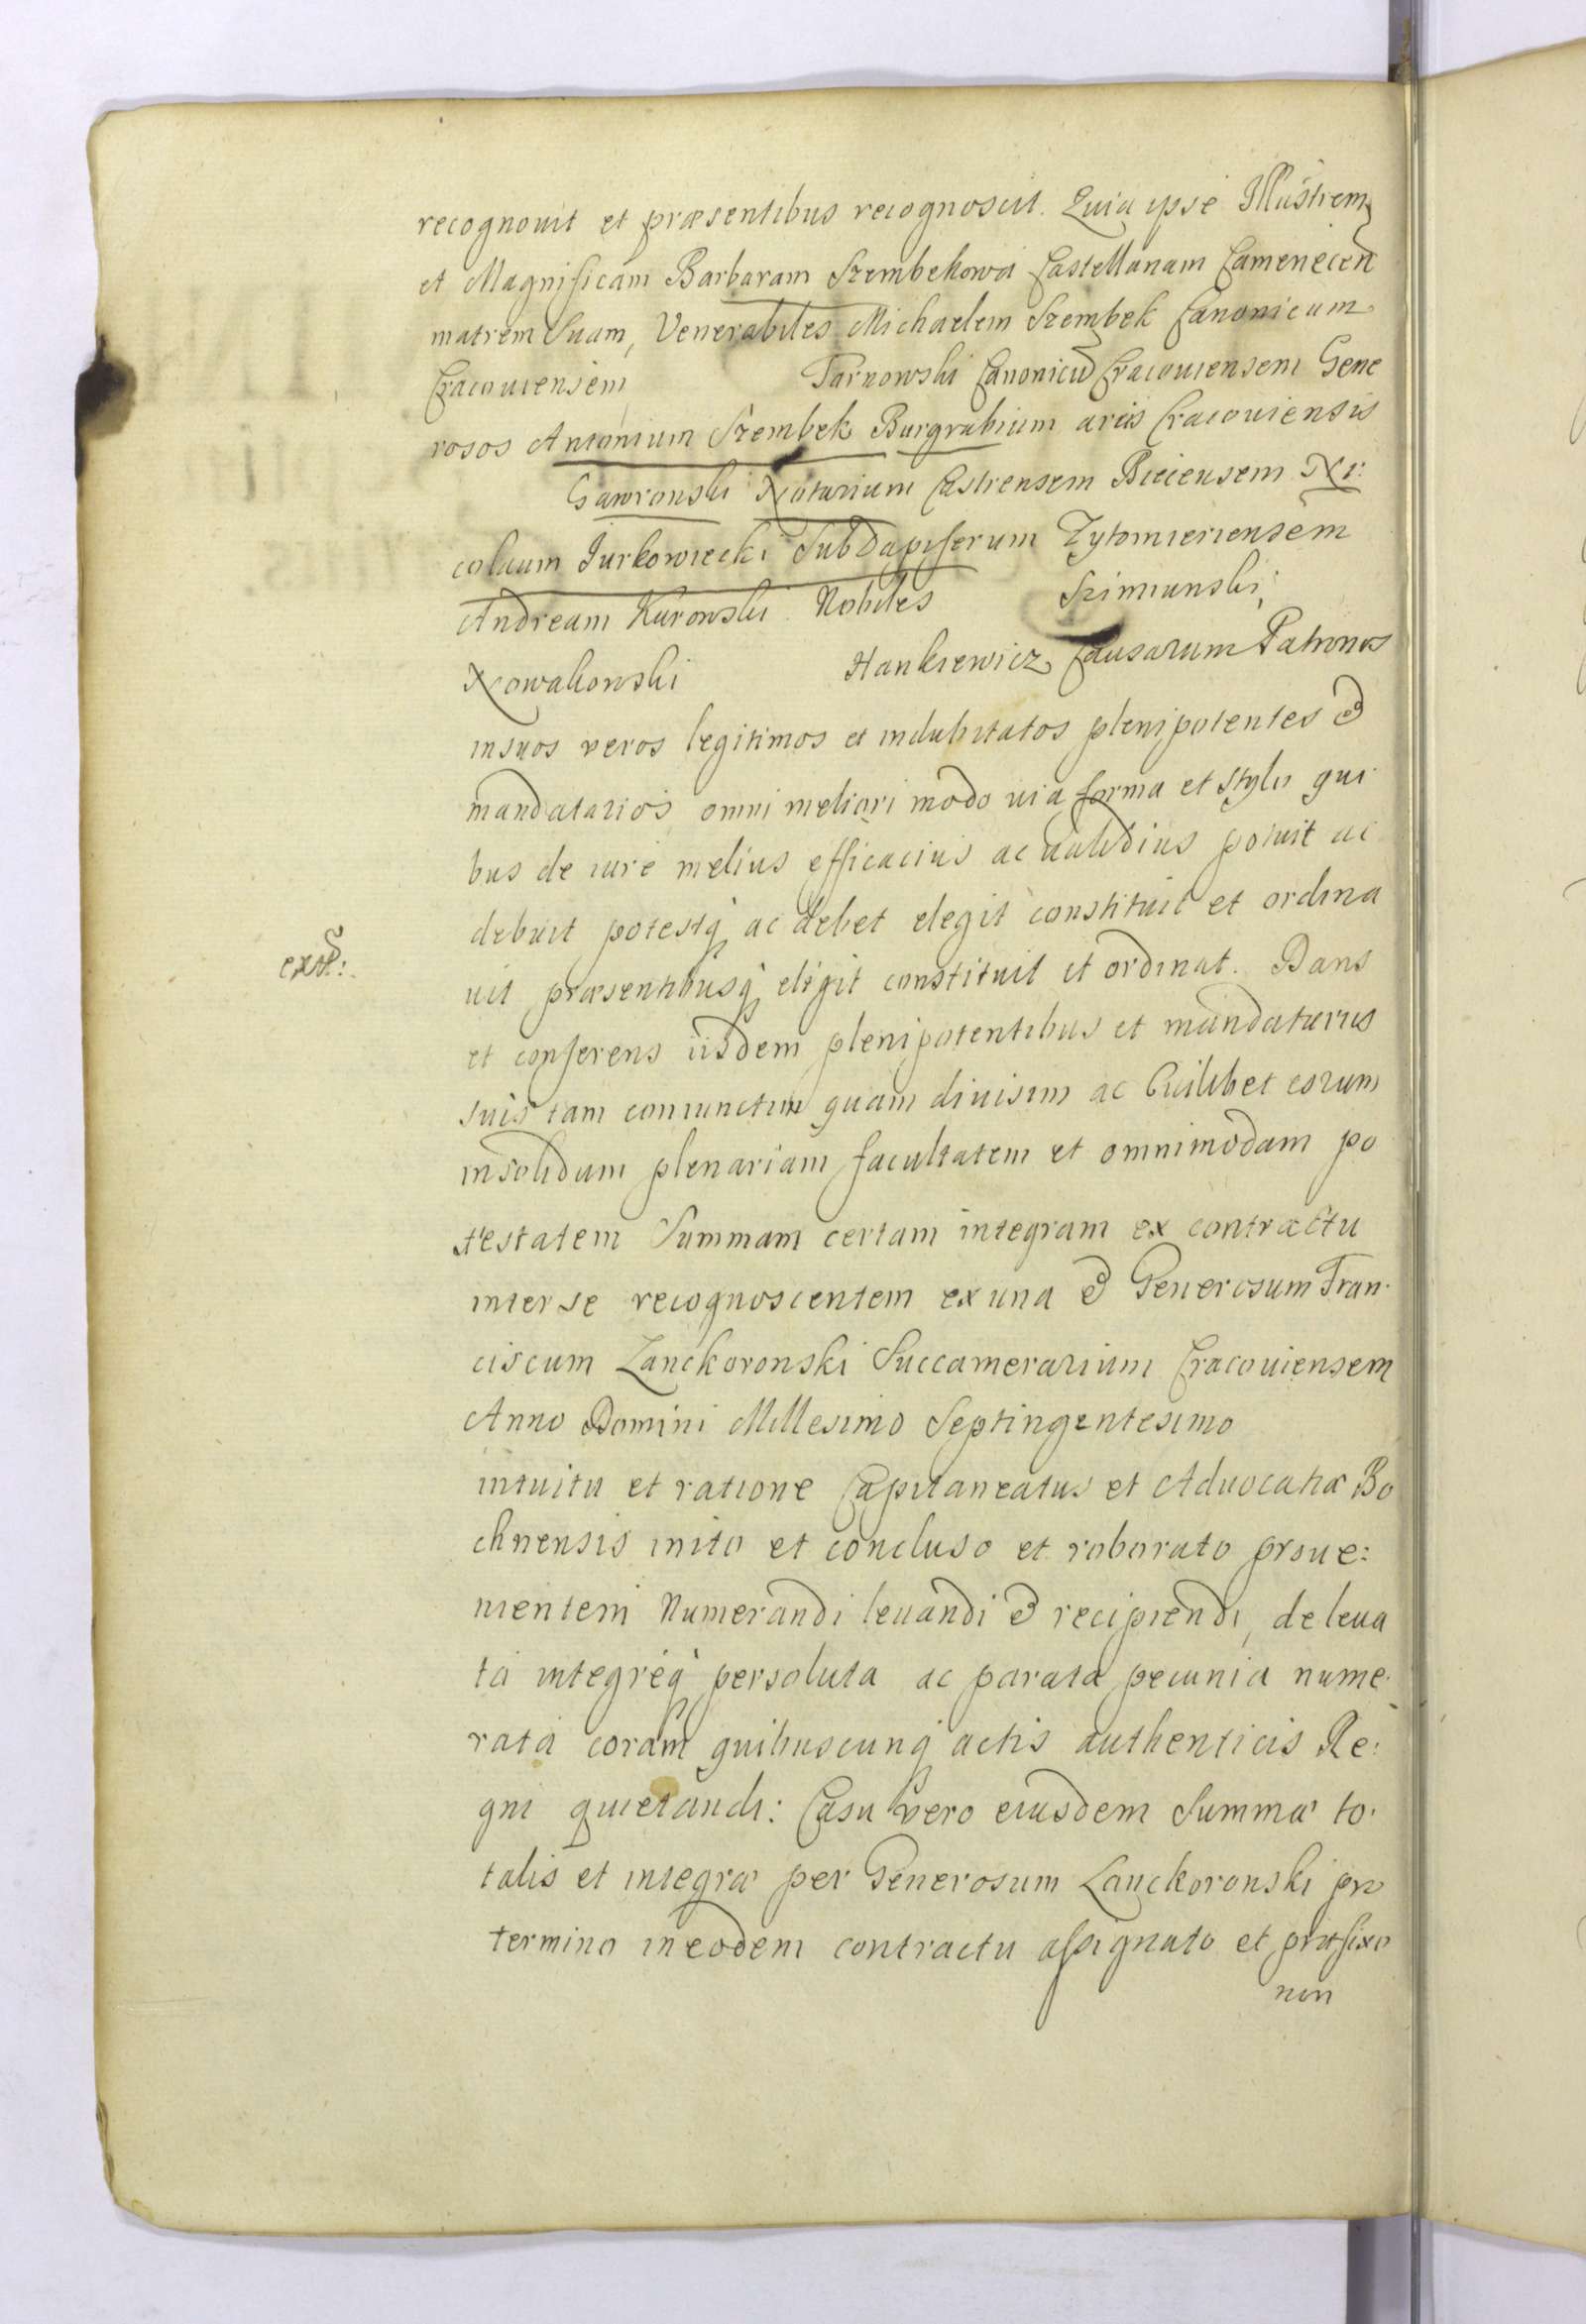 recognovit et præsentibus recognoscit. Quia ipse Illustrem
et Magnificam Barbaram Szembekowa Castellanam Camenecen
matrem Suam, Venerabiles Michaelem Szembek Canonicum
Cracouiensem Tarnowski Canonicũ Cracouiensem Gene
rosos Antonium Szembek Burgrabium arcis Cracouiensis
Gawronski Notarium Castrensem Biecensem Ni:
colaum Jurkowiecki Subdapiferum Zytomieriensem
Andream Kurowski Nobiles Szimianski,
Nowakowski Hankiewicz Causarum Patronos
in suos veros legitimos et indubitatos plenipotentes &
mandatarios omni meliori modo via forma et stylo qui
bus de iure melius efficacius ac validius potuit ac
debuit potestq ac debet elegit constituit et ordina
exĩt:
uit præsentibusq eligit constituit et ordinat. Dans
et conferens iisdem plenipotentibus et mandatariis
suis tam coniunctim quam diuisim ac Cuilibet eorum
insolidum plenariam facultatem et omnimodam po
testatem Summam certam integram ex contractu
inter se recognoscentem ex una & Generosum Fran
ciscum Lanckoronski Succamerarium Cracouiensem
Anno Domini Millesimo Septingentesimo
intuitu et ratione Capitaneatus et Aduocatiæ Bo
chnensis inito et concluso et roborato proue:
nientem Numerandi leuandi & recipiendi, de leua
ta integreq persoluta ac parata pecunia nume:
rata coram quibuscunq actis authenticis Re:
gni quietandi: Casu vero eiusdem Summæ to:
talis et integræ per Generosum Lanckoronski pro
termino in eodem contractu assignato et præfixo
non